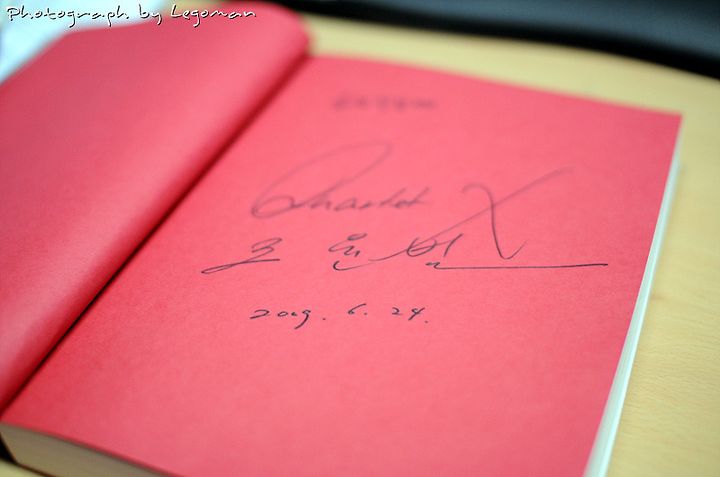 Photograph by Legoman
Quartet X
조윤범
2009. 6. 24.